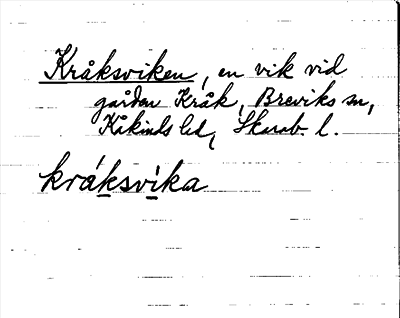 Kråksviken, en vik vid
gården Kråk, Breviks sn,
Kåkinds hd, Skarab. l.
kråksvika